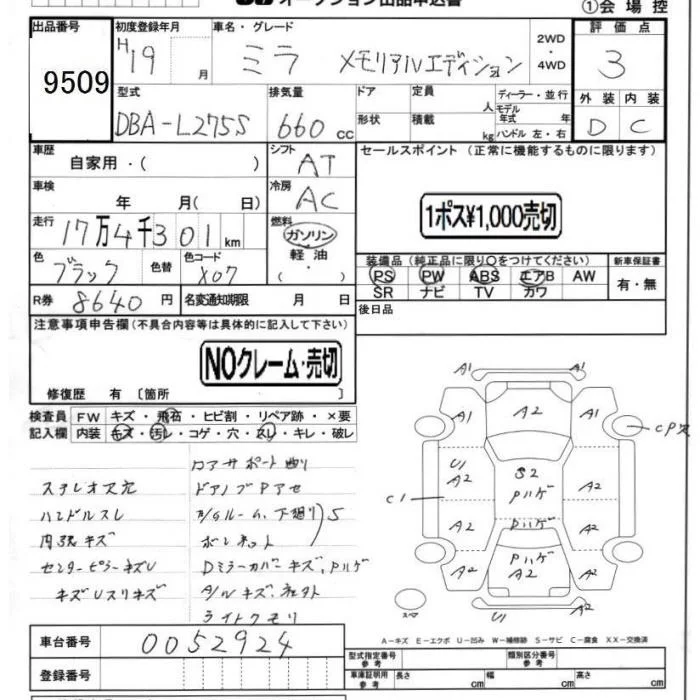 オークション出品申込書
①会場控
出品番号 初度登録年月 車名・グレード 2WD・4WD 評価点
9509 H19 月 ミラ メモリアルエディション 3
型式 排気量 ドア 定員 人 ディーラー・並行 外装 内装
DBA-L275S 660 cc 形状 積載 kg モデル年式 年 ハンドル 左・右 D C
車歴 自家用・( ) シフト AT セールスポイント (正常に機能するものに限ります)
車検 年 月( 日) 冷房 AC
1ポス¥1,000売切
走行 17万4千301km 燃料 ガソリン 軽油
色 ブラック 色替 色コード X07
装備品 (純正品に限り○をつけてください) 新車保証書
PS PW ABS エアB AW 有・無
SR ナビ TV カワ
R券 8640円 名変通知期限 月 日 後日品
注意事項申告欄 (不具合内容等は具体的に記入して下さい)
NOクレーム・売切
修復歴 有 [箇所 ]
検査員 FW キズ・飛石・ヒビ割・リペア跡・×要
記入欄 内装 キズ・汚レ・コゲ・穴・スレ・キレ・破レ
ステレオス穴
ドアノブPアセ
ハンドルスレ
下廻り S
内張キズ
ボンネット
センターピラーキズU
DミラーカバーキズPハゲ
ライトクモリ
A1 A1
A1 A2 A1
CPス
U1 A2 S2 Pハゲ A2
C1
A2 Pハゲ A2
A2 Pハゲ A2 A2
U1 A2
スペア
A-キズ E-エクボ U-凹み W-補修跡 S-サビ C-腐食 XX-交換済
車台番号 0052924
型式指定番号 参考 類別区分番号 参考
登録番号 車庫証明用 参考 長さ cm 幅 cm 高さ cm